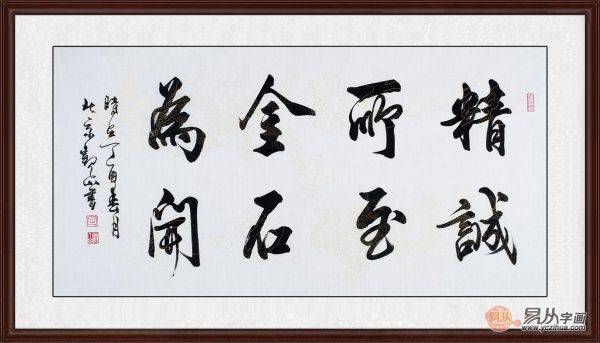 精誠
所至
金石
為開
時在丁酉春月
北京觀山書
易从 易从字画
www.yczihua.com